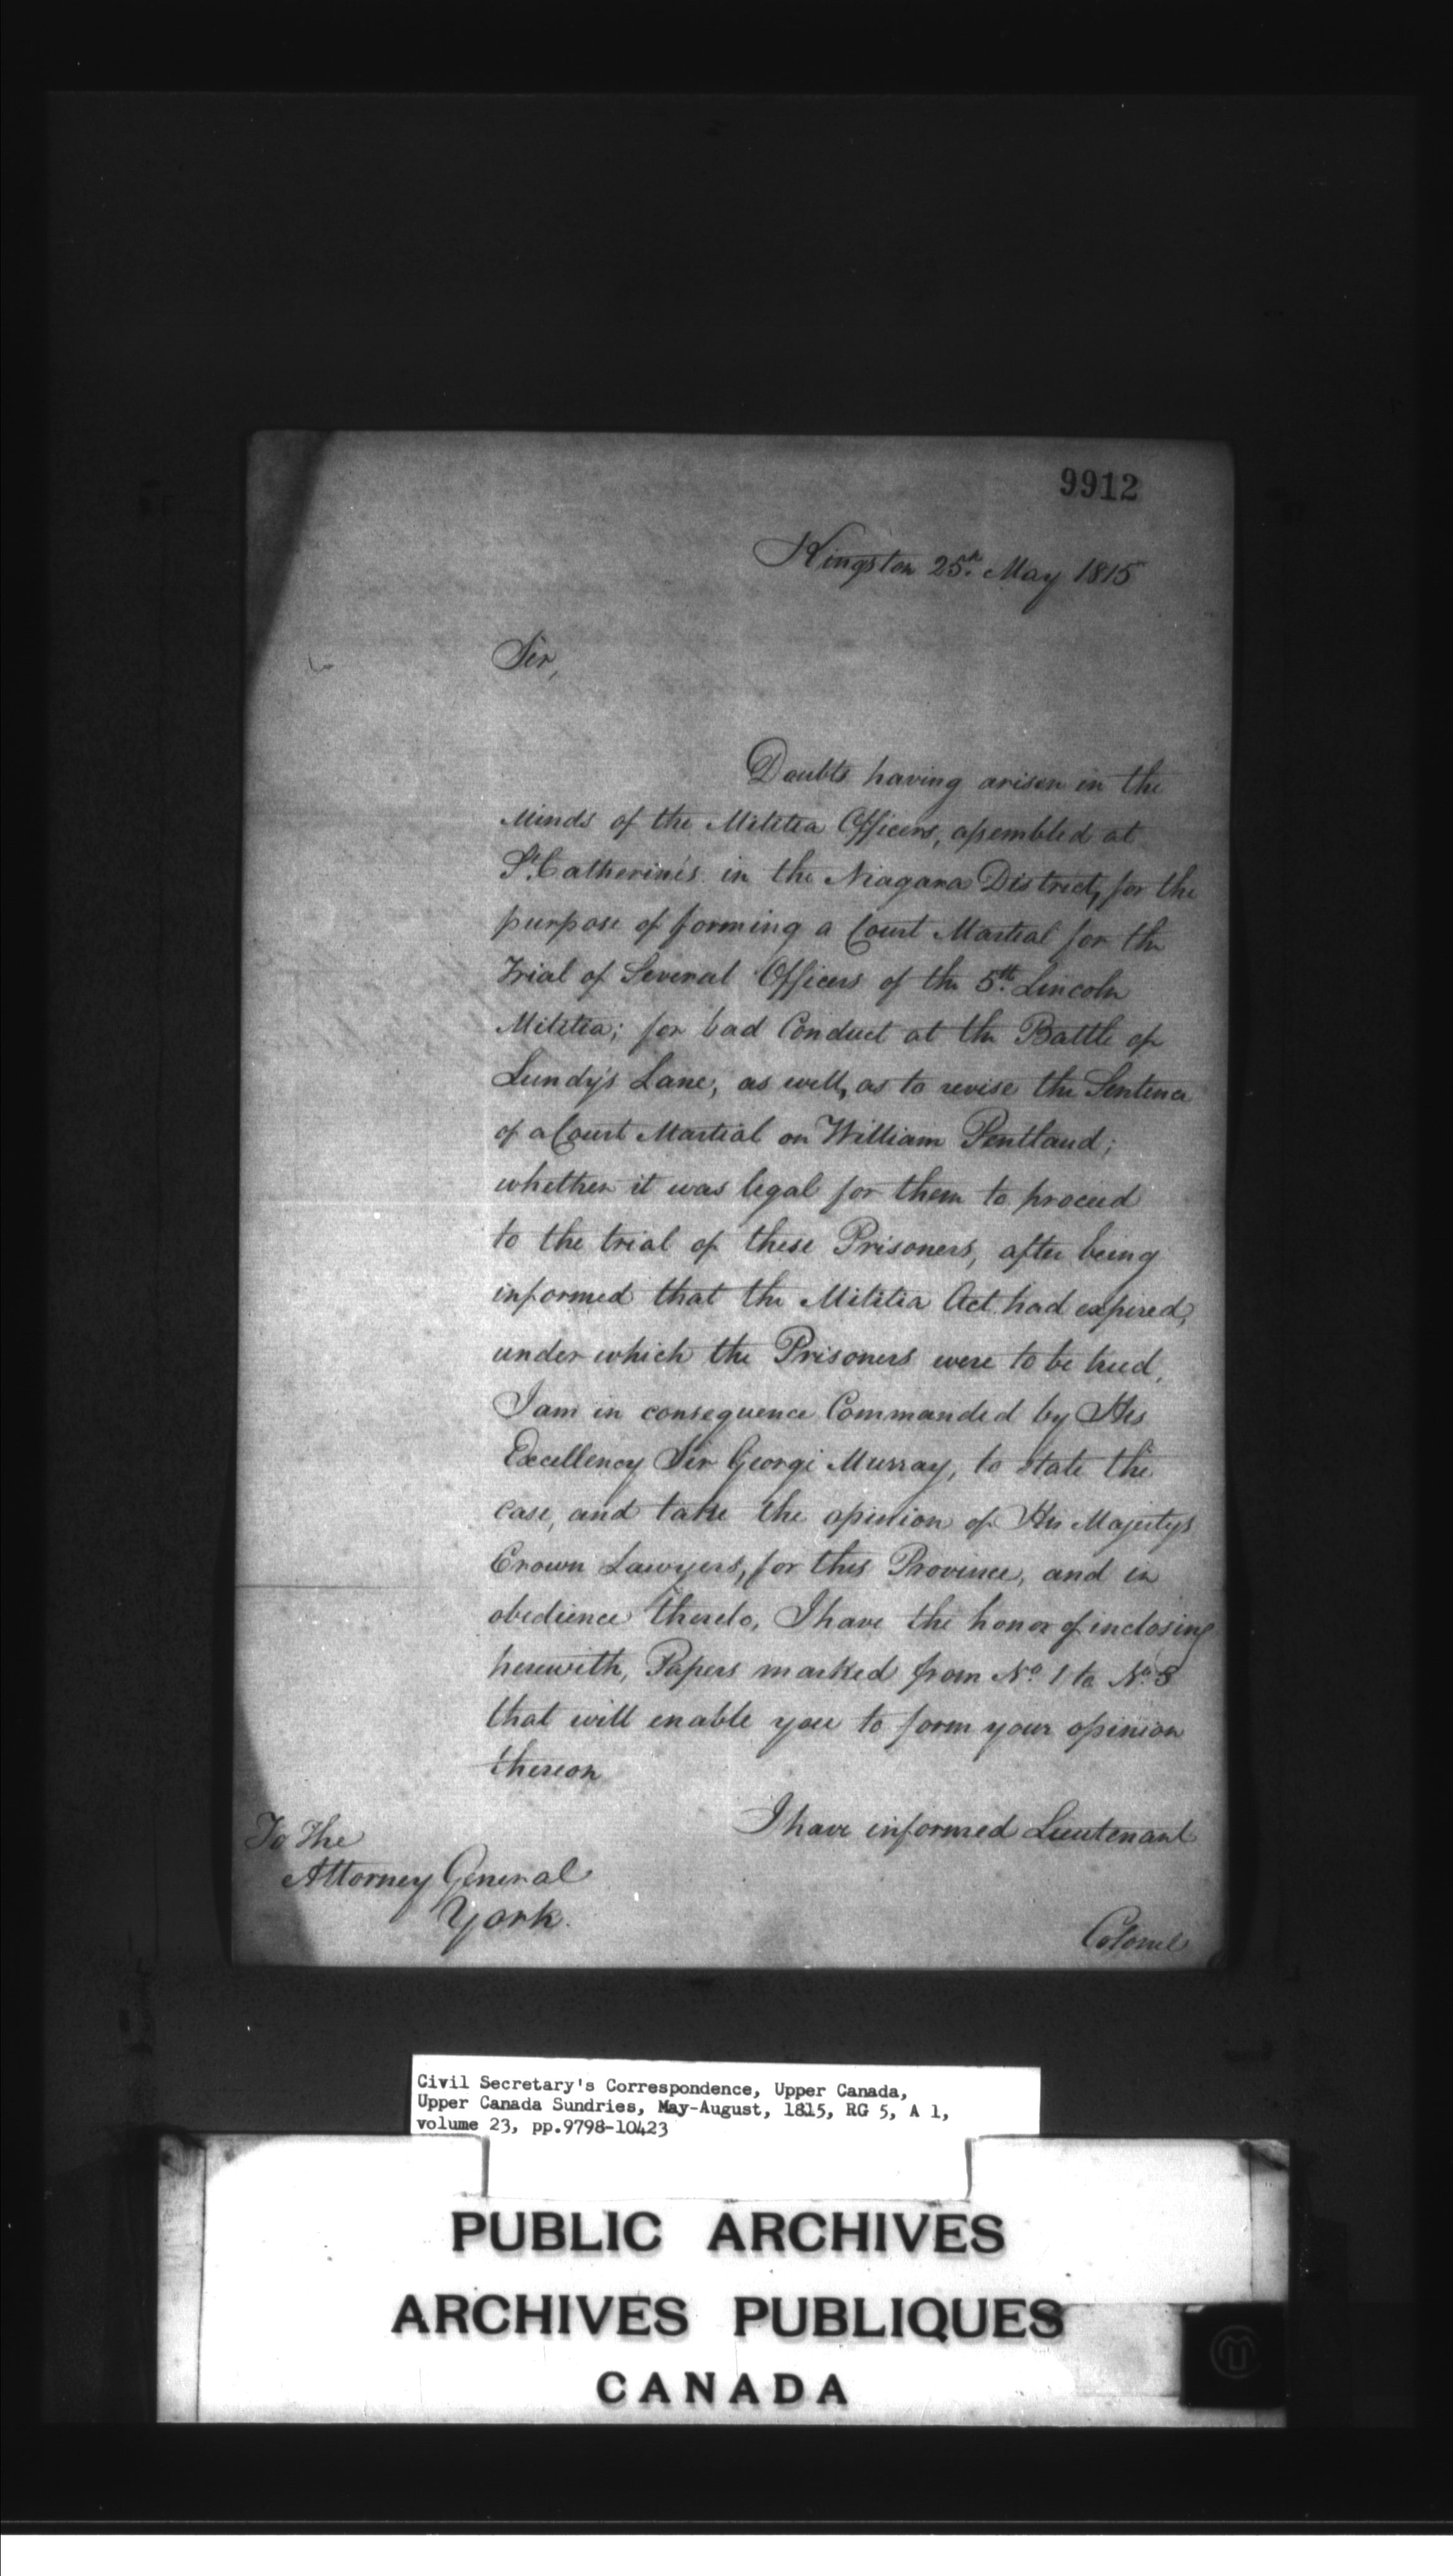 9912
Kingston 25th. May 1815
Sir,
Doubts having arisen in the
Minds of the Militia Officers, assembled at
St. Catherine's in the Niagara District, for the
purpose of forming a Court Martial for the
Trial of Several Officers of the 5th. Lincoln
Militia; for bad Conduct at the Battle of
Lundy's Lane, as well, as to revise the Sentence
of a Court Martial on William Pentland;
whether it was legal for them to proceed
to the trial of these Prisoners, after being
informed that the Militia Act had expired,
under which the Prisoners were to be tried,
I am in consequence Commanded by His
Excellency Sir George Murray, to state the
case, and take the opinion of His Majestys
Crown Lawyers, for this Province, and in
obedience thereto, I have the honor of inclosing
herewith, Papers marked from No. 1 to No.
that will enable you to form your opinion
thereon
I have informed Lieutenant
To The
Attorney General
York.
Colonel
Civil Secretary's Correspondence, Upper Canada,
Upper Canada Sundries, May-August, 1815, RG 5, A 1,
volume 23, pp.9798-10423
PUBLIC ARCHIVES
ARCHIVES PUBLIQUES
CANADA